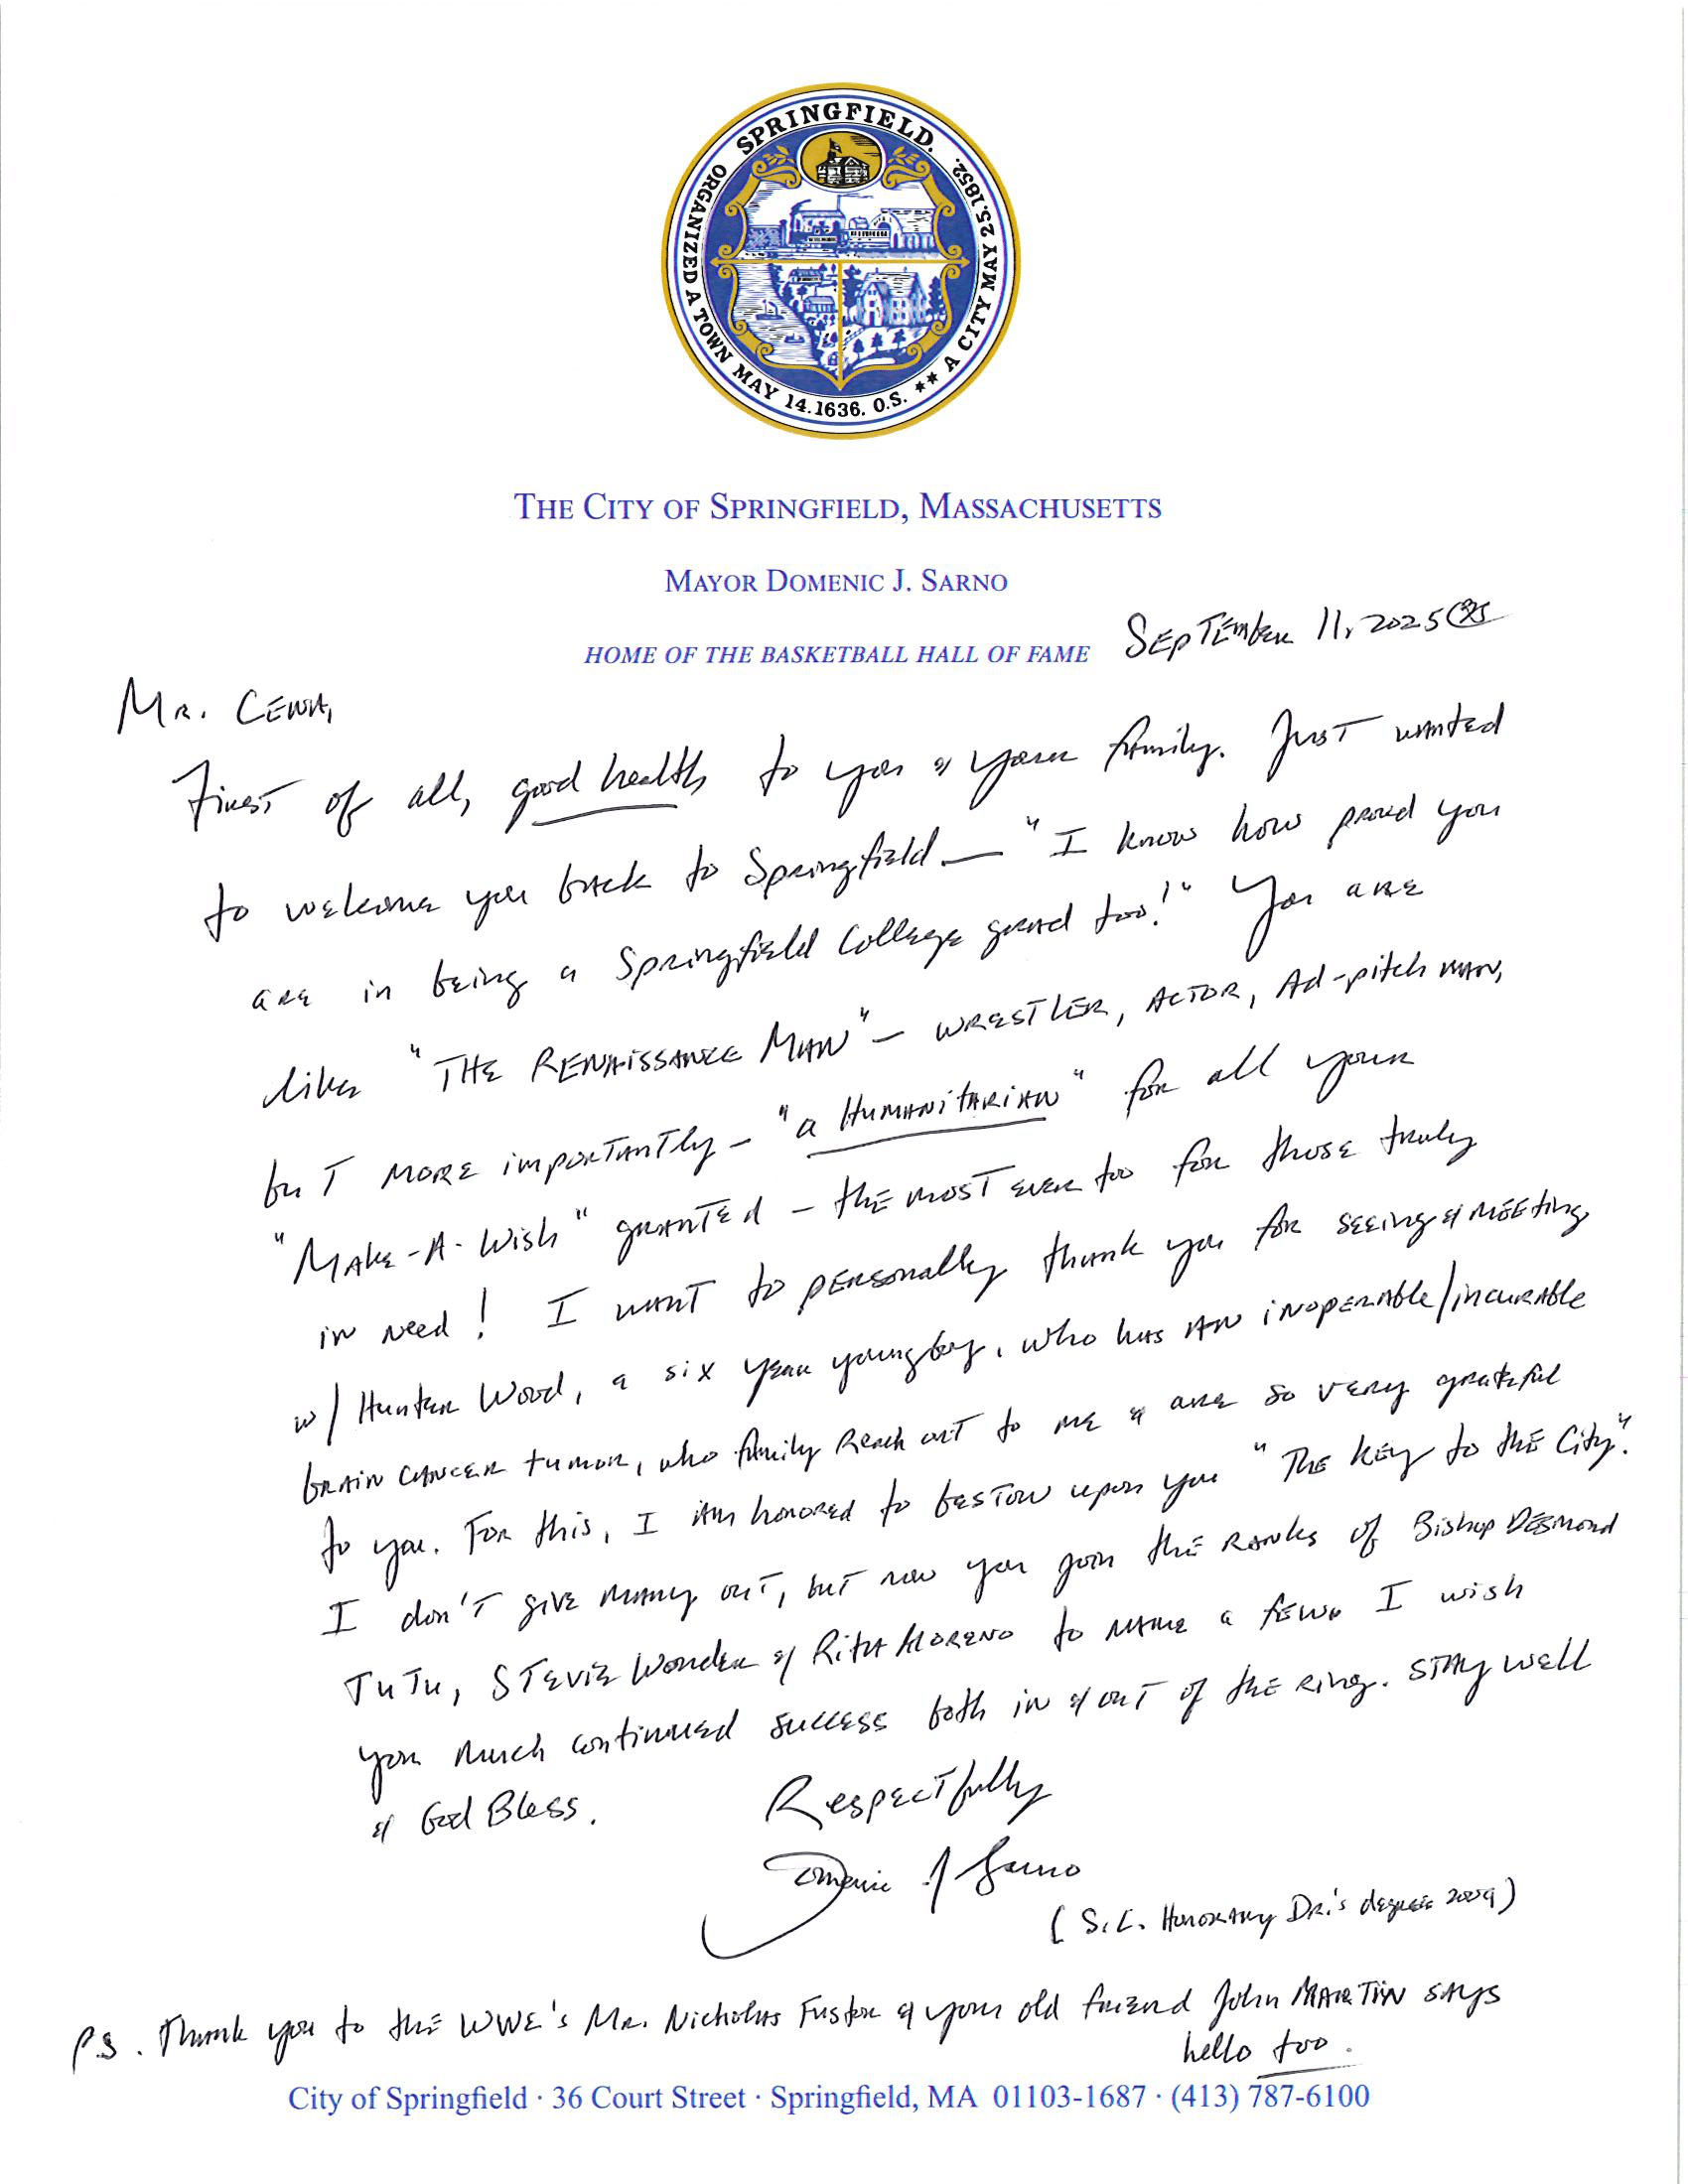 SPRINGFIELD.
ORGANIZED A TOWN MAY 14.1636. O.S. ** A CITY MAY 25.1852.
THE CITY OF SPRINGFIELD, MASSACHUSETTS
MAYOR DOMENIC J. SARNO
HOME OF THE BASKETBALL HALL OF FAME
September 11, 2025
Mr. Cena,
First of all, good health to you & your family. Just wanted
to welcome you back to Springfield — "I know how proud you
are in being a Springfield College grad too!" You are
like "THE RENAISSANCE MAN" – WRESTLER, ACTOR, Ad-pitch man,
but more importantly – "a Humanitarian" for all your
"Make-A-Wish" granted – the most ever too for those truly
in need! I want to personally thank you for seeing & meeting
w/ Hunter Wood, a six year young boy, who has an inoperable/incurable
brain cancer tumor, who family reach out to me & are so very grateful
to you. For this, I am honored to bestow upon you "The Key to the City".
I don't give many out, but now you join the ranks of Bishop Desmond
Tutu, Stevie Wonder & Rita Moreno to name a few. I wish
you much continued success both in & out of the ring. Stay well
& God Bless.
Respectfully
Domenic J Sarno
(S.C. Honorary Dr.'s degree 2009)
P.S. Thank you to the WWE's Mr. Nicholas Fustor & your old friend John Martin says
hello too.
City of Springfield · 36 Court Street · Springfield, MA 01103-1687 · (413) 787-6100